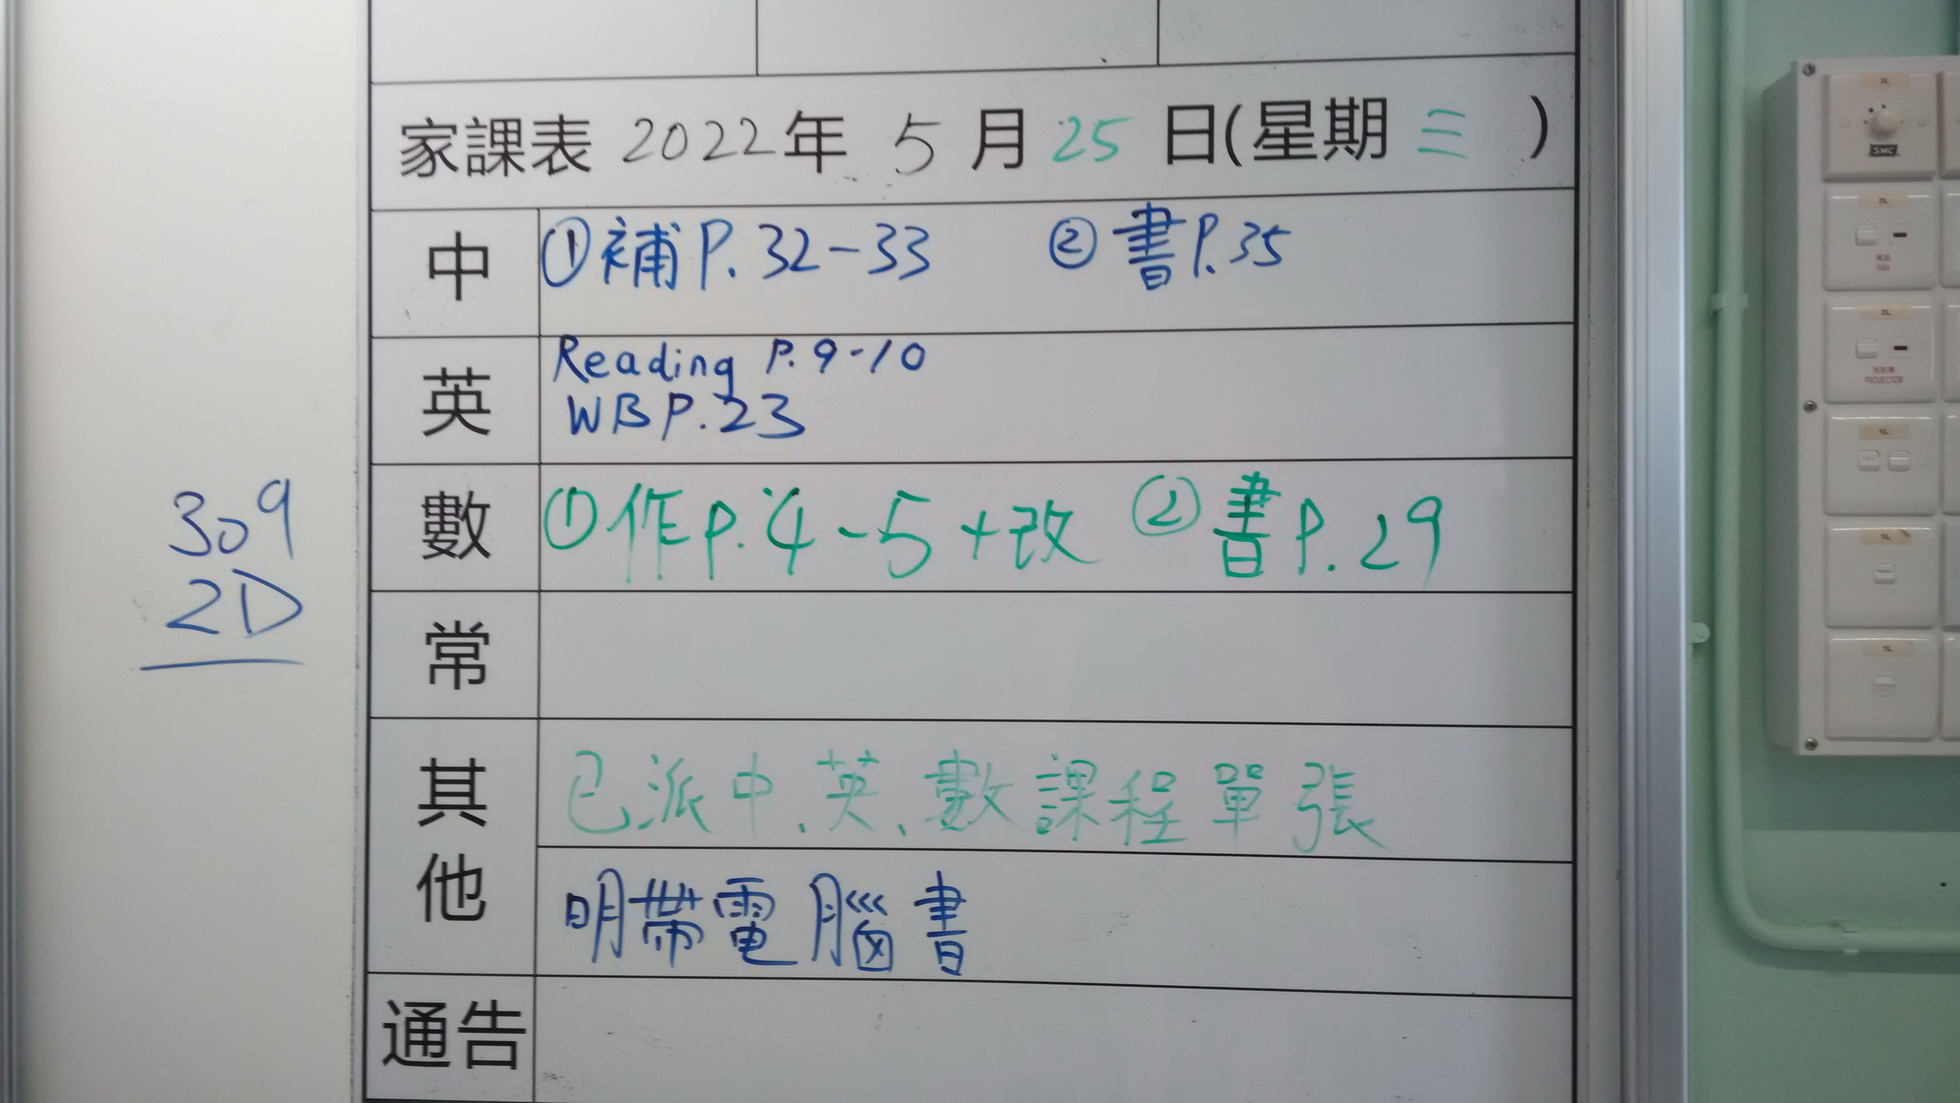 家課表 2022年 5月25日(星期三)
中 ①補P.32-33 ②書P.35
英 Reading P.9-10
WB P.23
數 ①作P.4-5+改 ②書P.29
常
其他 已派中、英、數課程單張
明帶電腦書
通告
309
2D
SMC
FAN
PROJECTOR